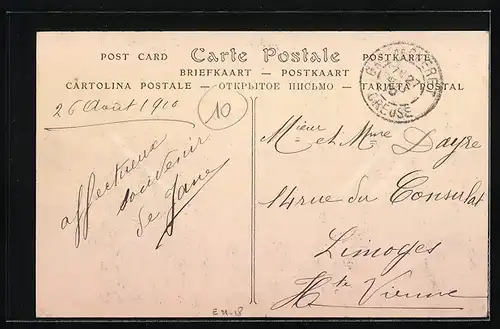 POST CARD Carte Postale POSTKARTE
BRIEFKAART — POSTKAART
CARTOLINA POSTALE — ОТКРЫТОЕ ПИСЬМО — TARJETA POSTAL
26 Août 1910
10
affectueux
souvenir
de Jane
CREUSE
Mieur et Mme Dayre
14 rue du Consulat
Limoges
Hte Vienne
E M-18